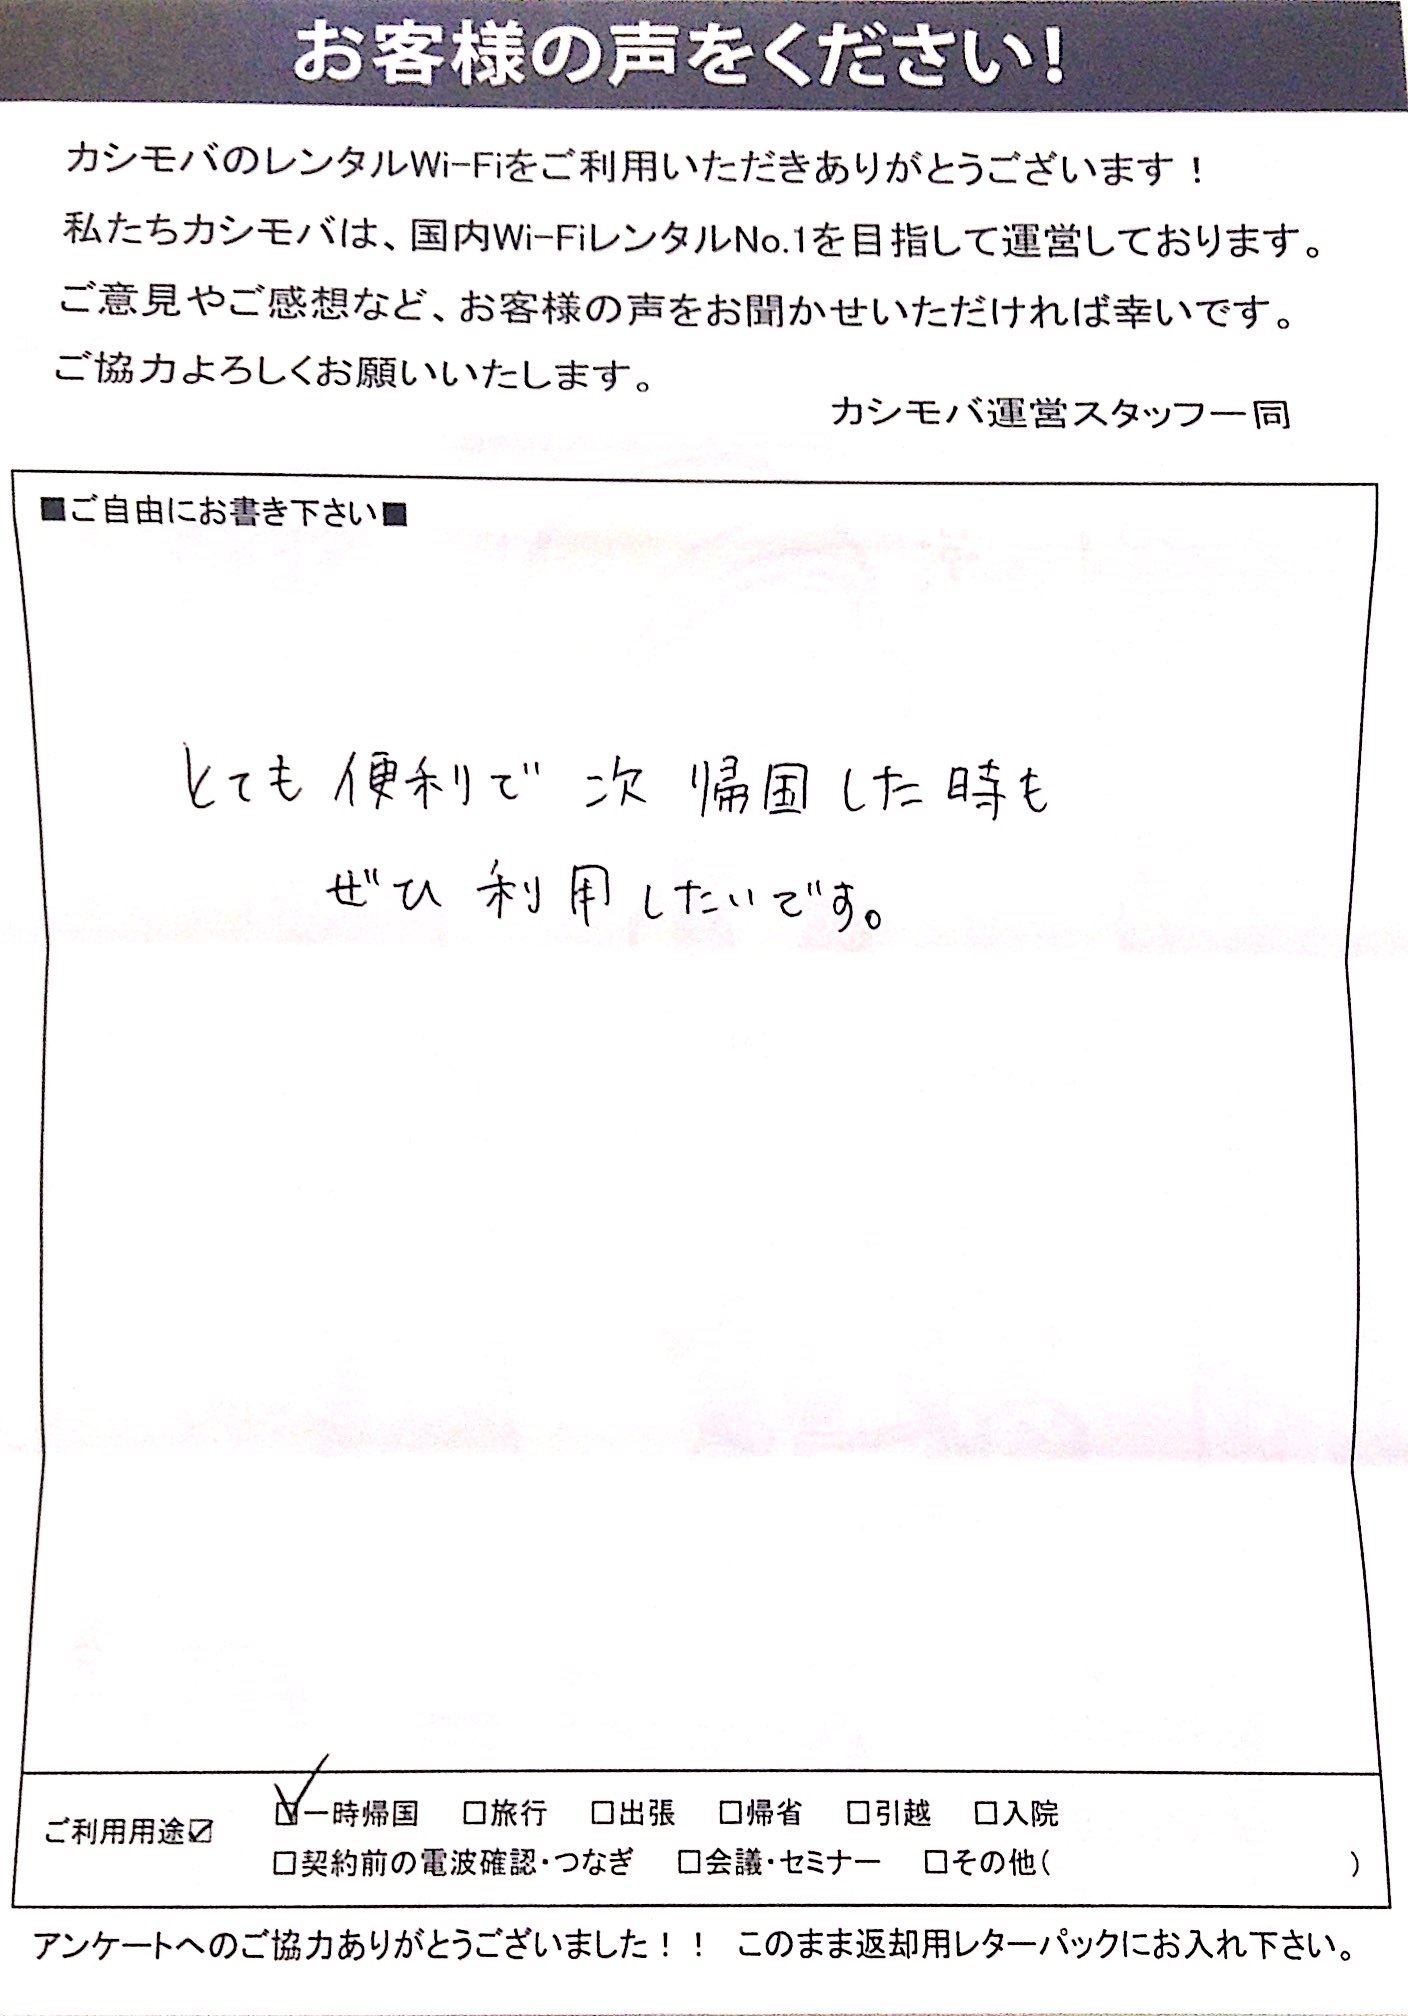 お客様の声をください!
カシモバのレンタルWi-Fiをご利用いただきありがとうございます！
私たちカシモバは、国内Wi-FiレンタルNo.1を目指して運営しております。
ご意見やご感想など、お客様の声をお聞かせいただければ幸いです。
ご協力よろしくお願いいたします。
カシモバ運営スタッフ一同
■ご自由にお書き下さい■
とても便利で 次 帰国した時も
ぜひ 利用したいです。
ご利用用途☑
☑一時帰国 □旅行 □出張 □帰省 □引越 □入院
□契約前の電波確認・つなぎ □会議・セミナー □その他( )
アンケートへのご協力ありがとうございました！！ このまま返却用レターパックにお入れ下さい。